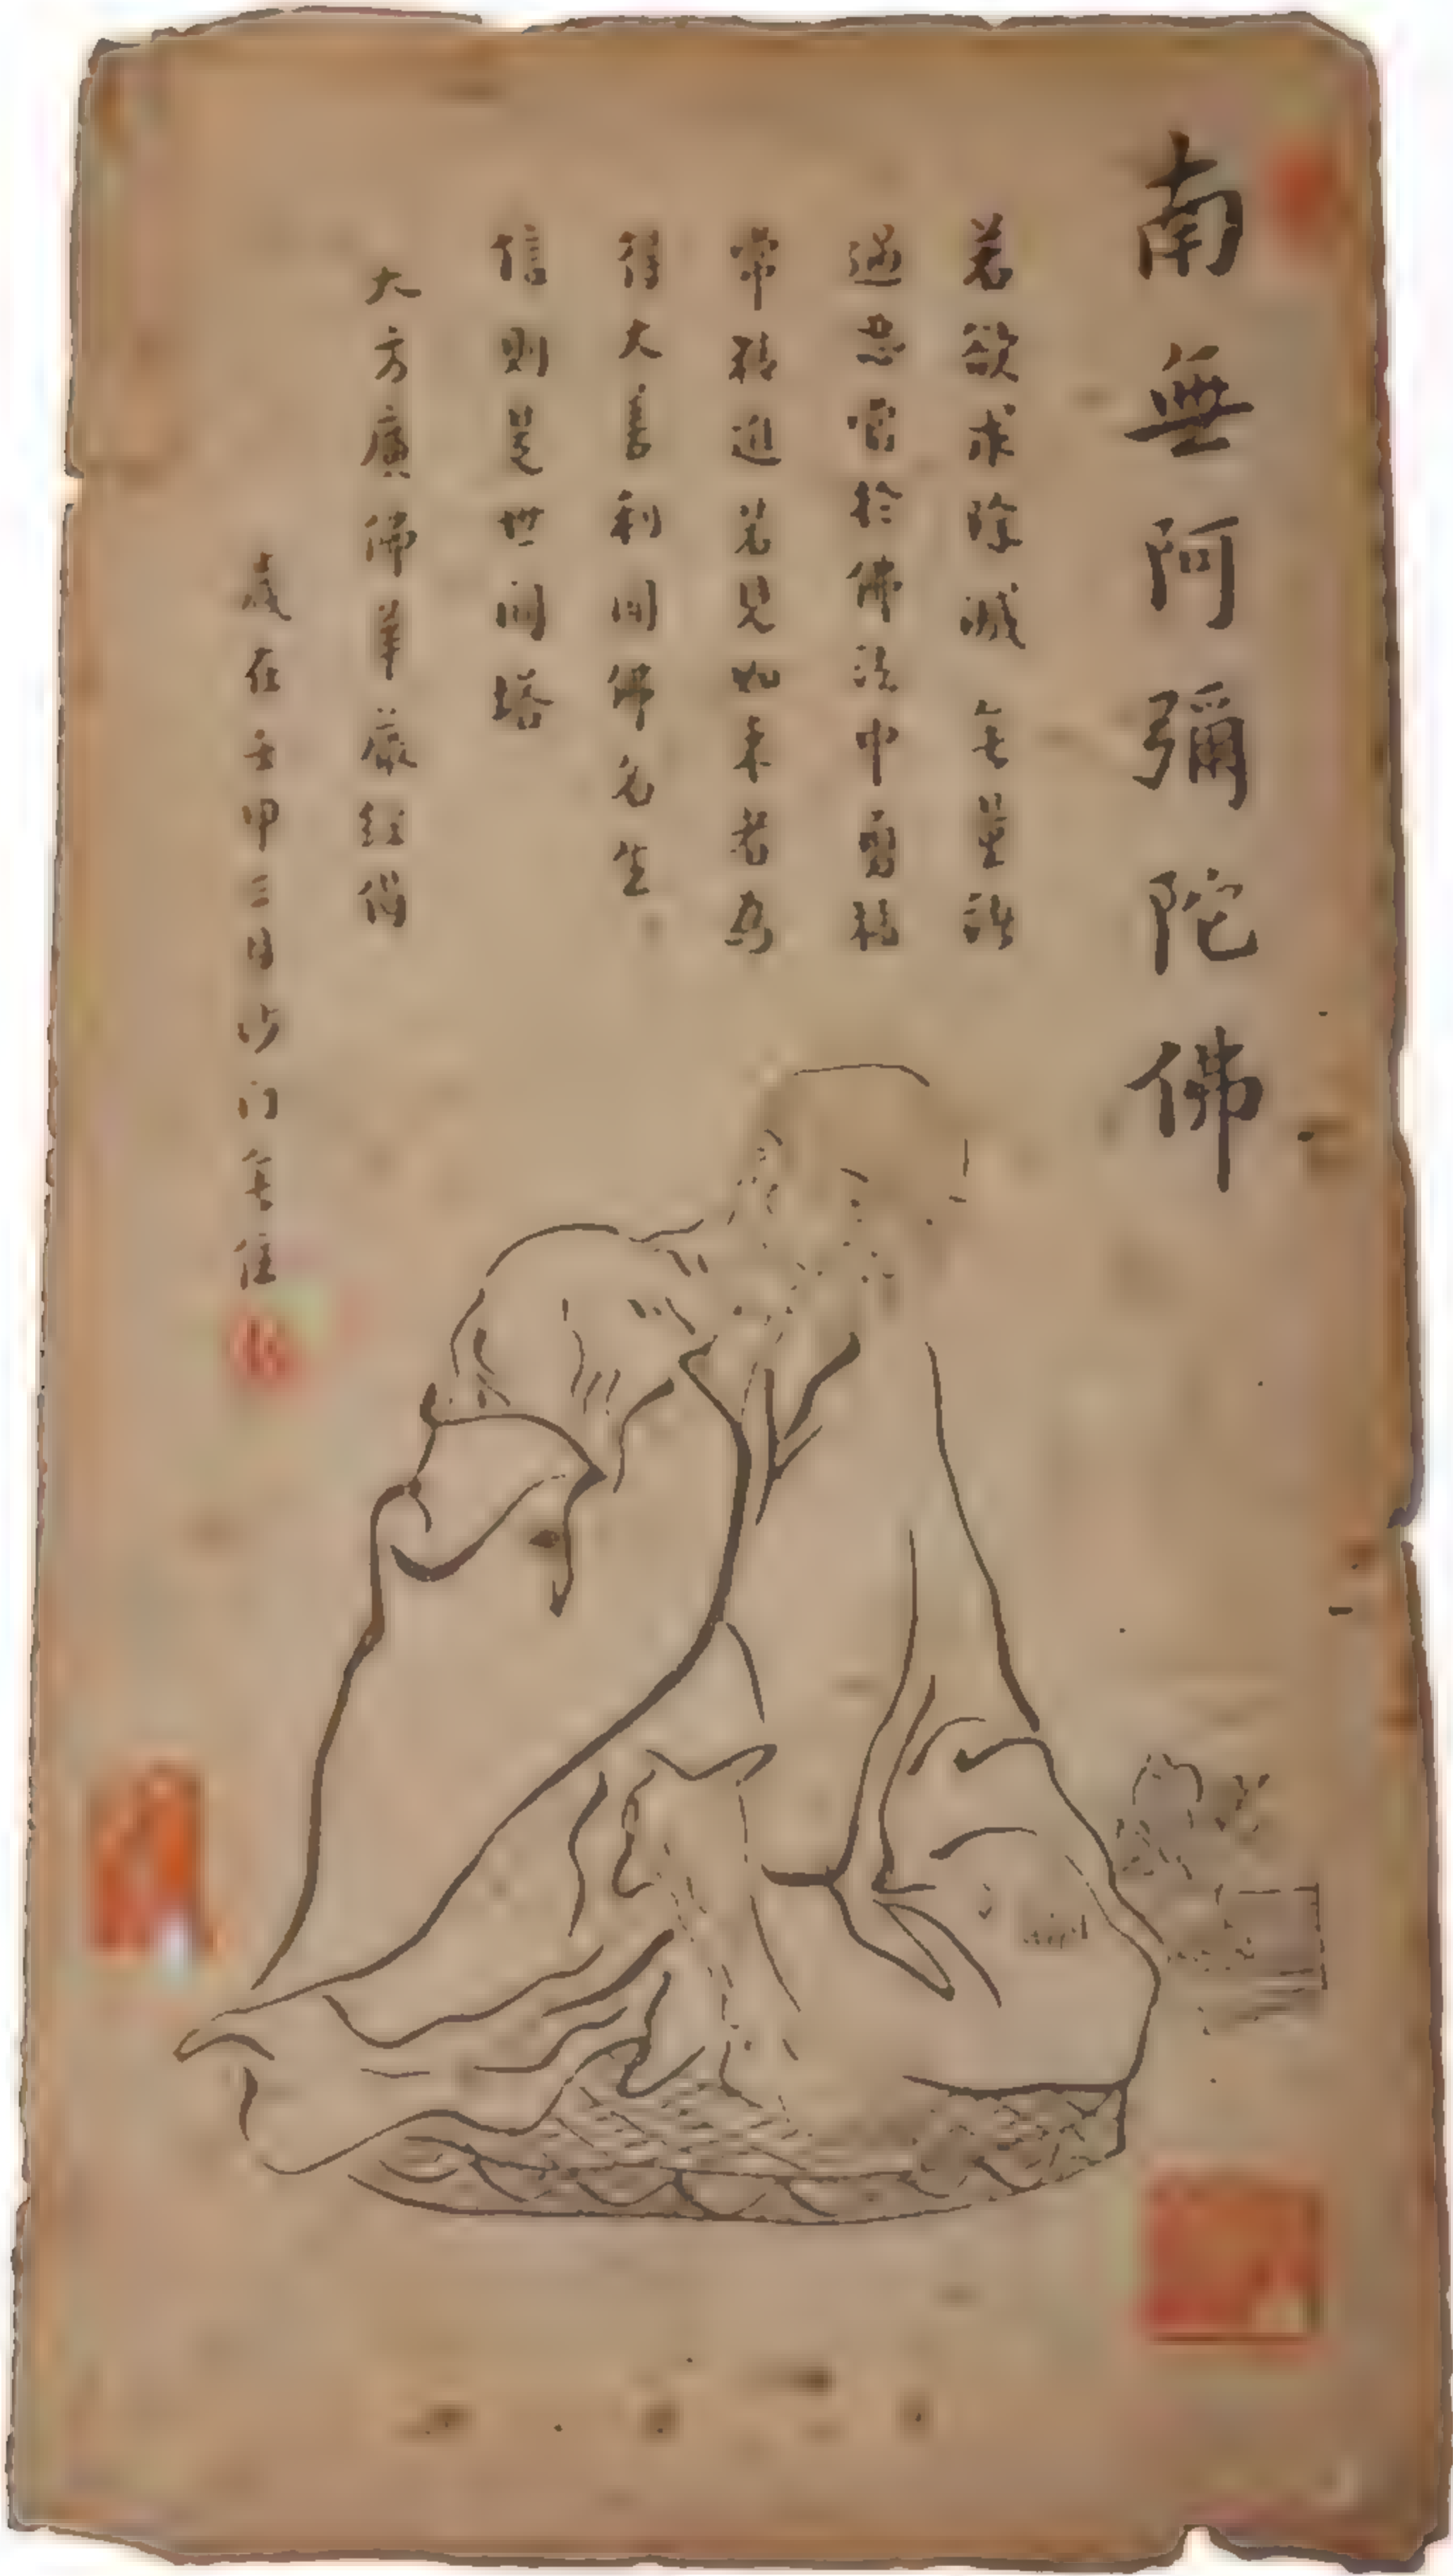 南無阿彌陀佛
若欲求除滅无量諸
過惡當於佛法中勇猛
常精進若見如来者為
得大善利聞佛名生
信則是世間塔
大方廣佛華嚴經偈
歲在壬申三月沙门无住